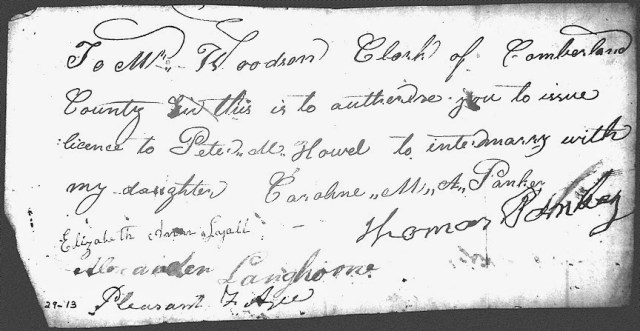 To Mr. Woodson Clark of Comberland
County Sir this is to autherise you to issue
licence to Peter M. Howel to intermarry with
my daughter Caroline „M„ A„ Panker
Thomas
Elizabeth Ann Lyall
Alexander Langhorne
Pleasant
29-13